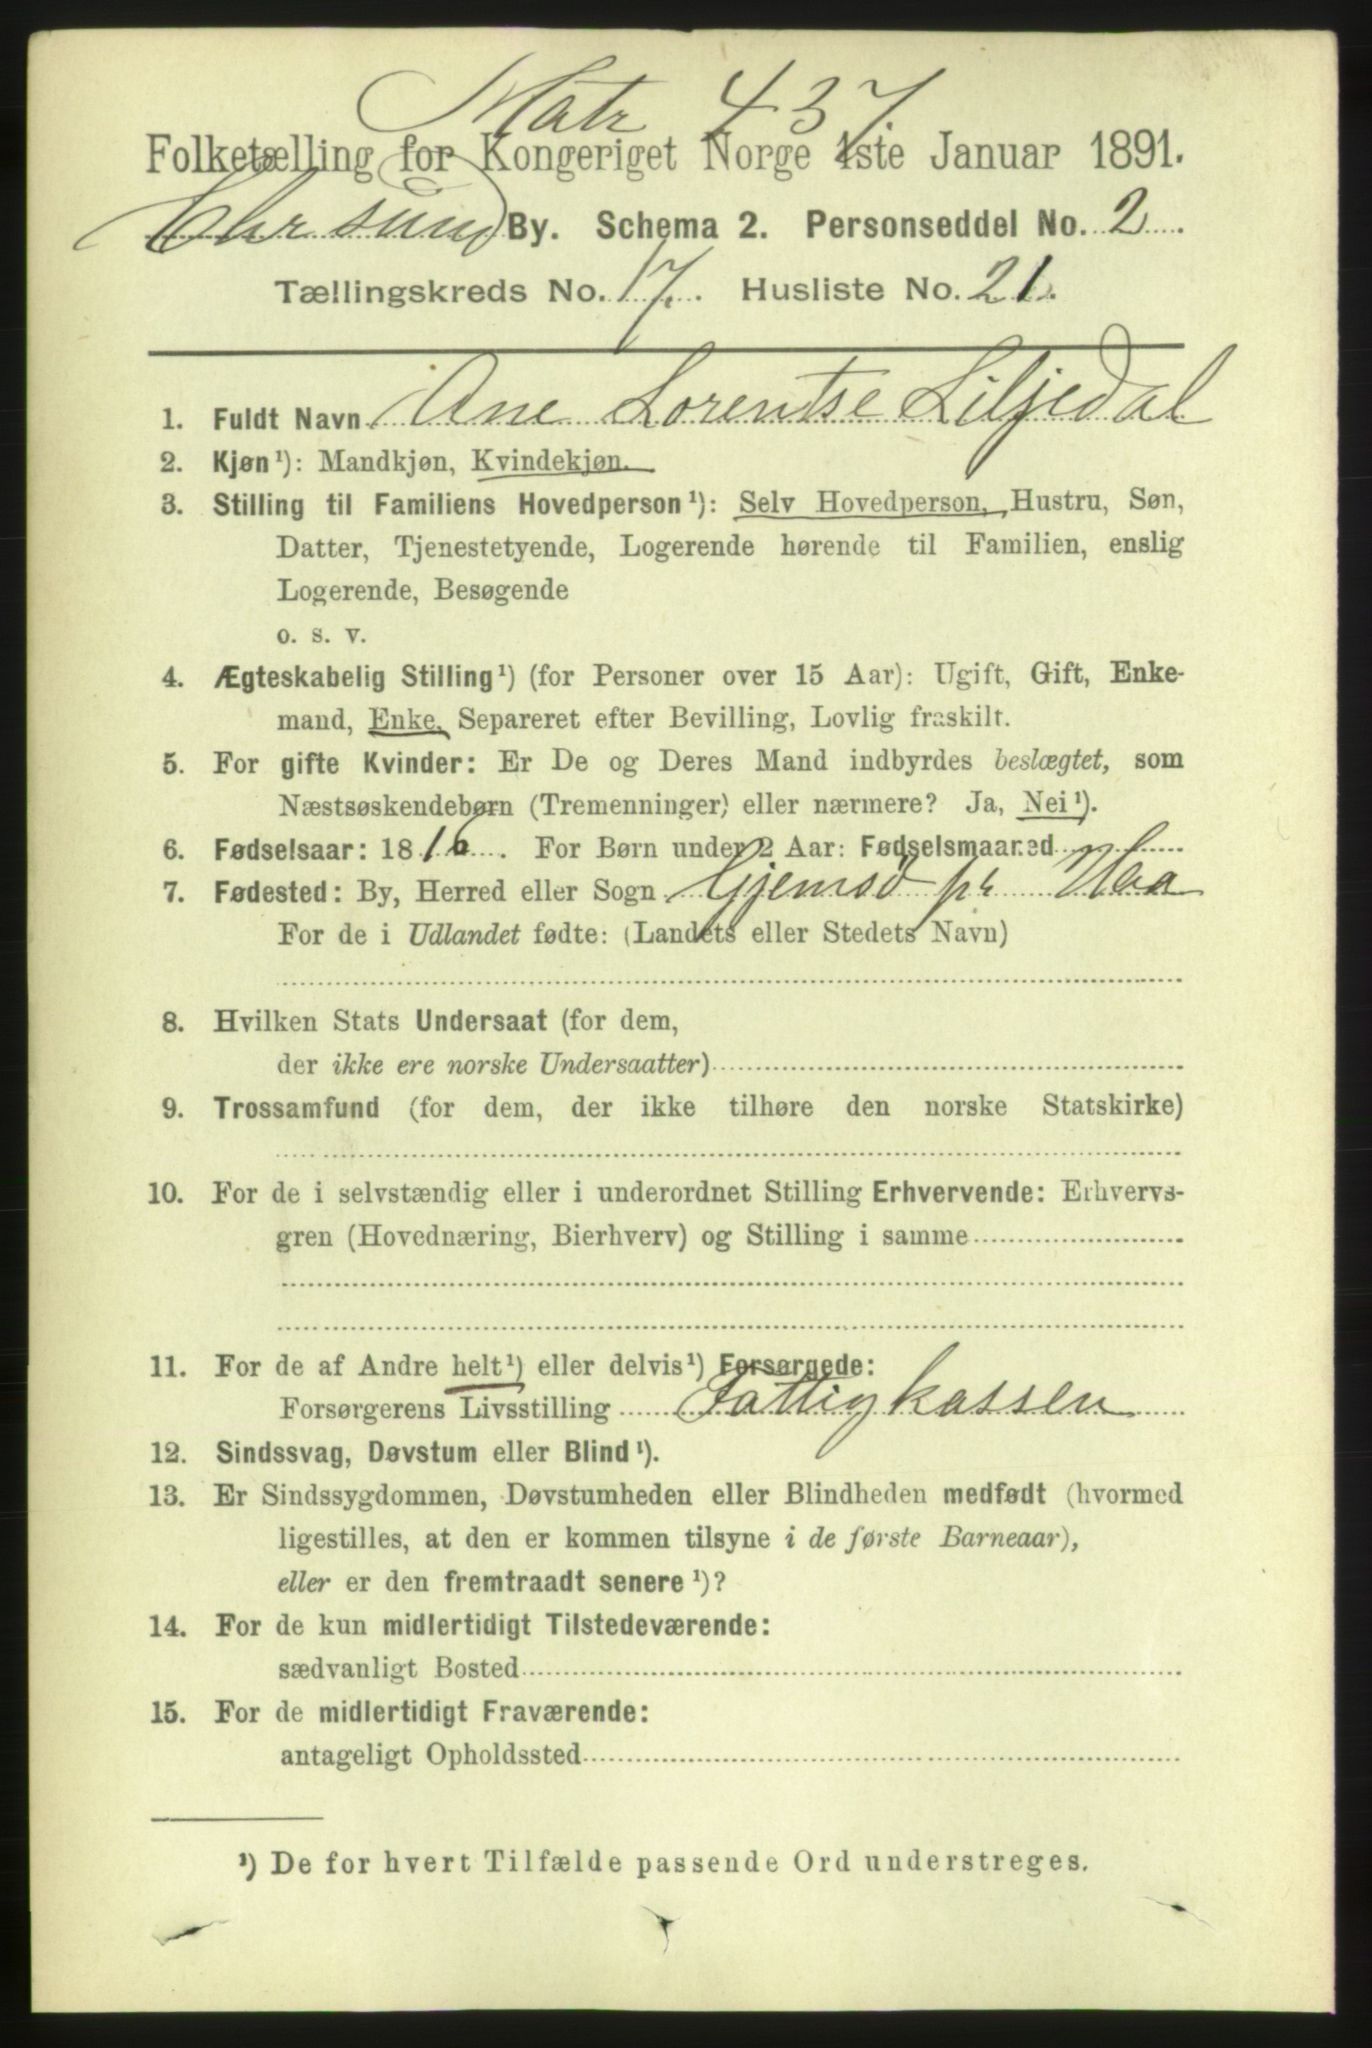 Matr 437.
Folketælling for Kongeriget Norge 1ste Januar 1891.
Chrsund By. Schema 2. Personseddel No. 2
Tællingskreds No. 17. Husliste No. 21.
1. Fuldt Navn Ane Lorentse Liljedal
2. Kjøn¹): Mandkjøn, Kvindekjøn.
3. Stilling til Familiens Hovedperson¹): Selv Hovedperson, Hustru, Søn,
Datter, Tjenestetyende, Logerende hørende til Familien, enslig
Logerende, Besøgende
o. s. v.
4. Ægteskabelig Stilling¹) (for Personer over 15 Aar): Ugift, Gift, Enke-
mand, Enke, Separeret efter Bevilling, Lovlig fraskilt.
5. For gifte Kvinder: Er De og Deres Mand indbyrdes beslægtet, som
Næstsøskendebørn (Tremenninger) eller nærmere? Ja, Nei¹).
6. Fødselsaar: 1816. For Børn under 2 Aar: Fødselsmaaned
7. Fødested: By, Herred eller Sogn Gjemsö pr
For de i Udlandet fødte: (Landets eller Stedets Navn)
8. Hvilken Stats Undersaat (for dem,
der ikke ere norske Undersaatter)
9. Trossamfund (for dem, der ikke tilhøre den norske Statskirke)
10. For de i selvstændig eller i underordnet Stilling Erhvervende: Erhvervs-
gren (Hovednæring, Bierhverv) og Stilling i samme
11. For de af Andre helt¹) eller delvis¹) Forsørgede:
Forsørgerens Livsstilling Fattigkassen
12. Sindssvag, Døvstum eller Blind¹).
13. Er Sindssygdommen, Døvstumheden eller Blindheden medfødt (hvormed
ligestilles, at den er kommen tilsyne i de første Barneaar),
eller er den fremtraadt senere¹)?
14. For de kun midlertidigt Tilstedeværende:
sædvanligt Bosted
15. For de midlertidigt Fraværende:
antageligt Opholdssted
¹) De for hvert Tilfælde passende Ord understreges.